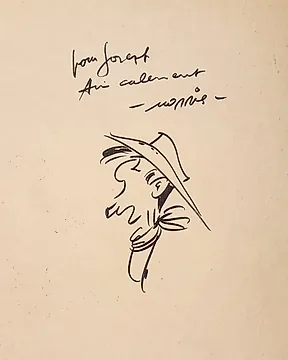 pour Joseph
Amicalement
- morris -